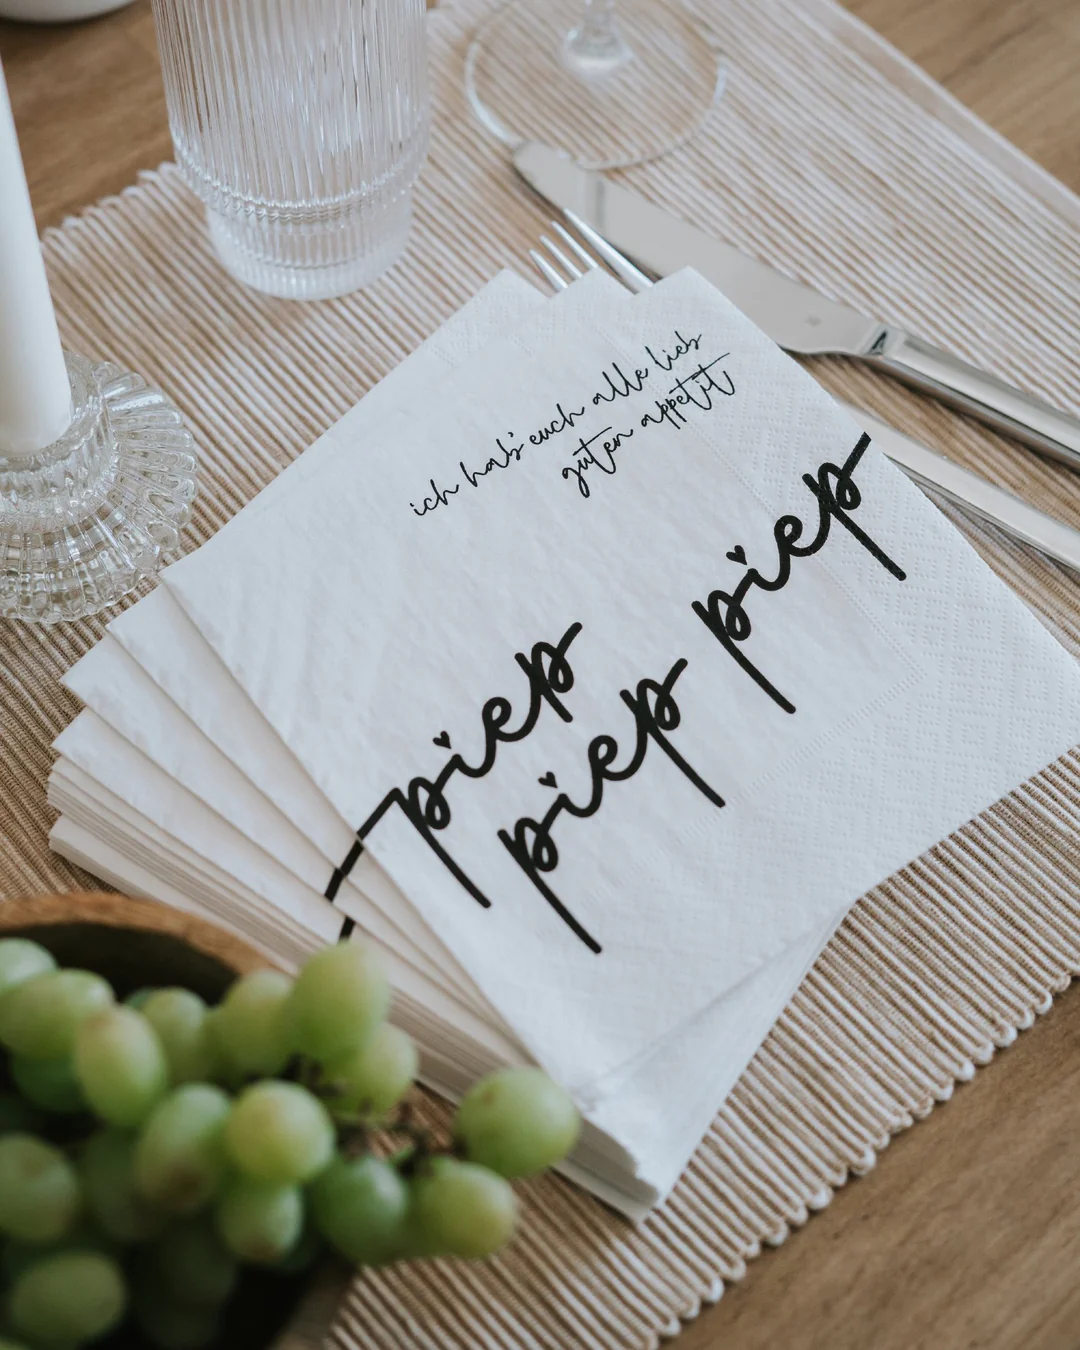 ich hab' euch alle lieb
guten appetit
piep
piep piep